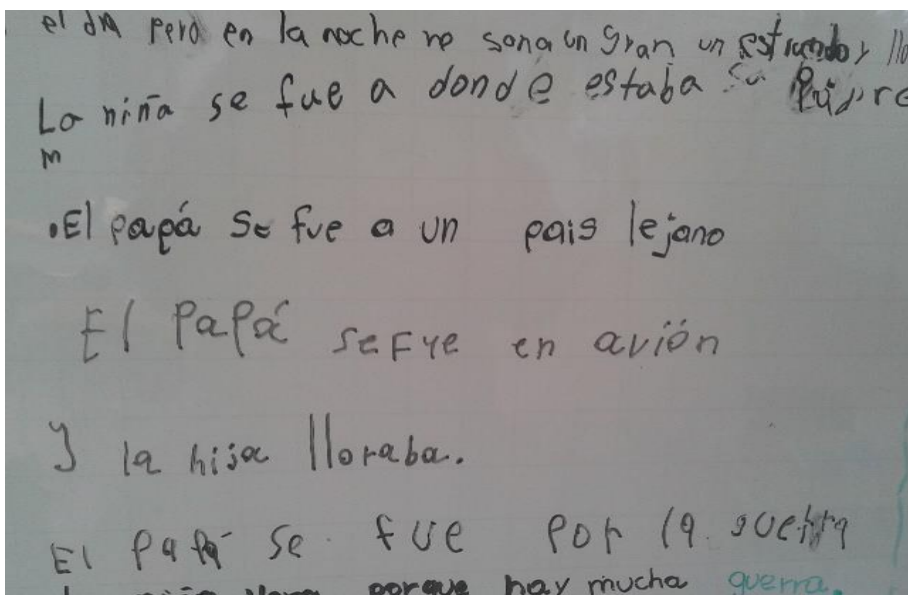 el dia pero en la noche no sona un gran un estruendo y llo
La niña se fue a donde estaba su Padre
m
.El papá se fue a un pais lejano
El Papá se Fue en avión
y la hija lloraba.
El papá se fue por la guerra
llora porque hay mucha guerra.